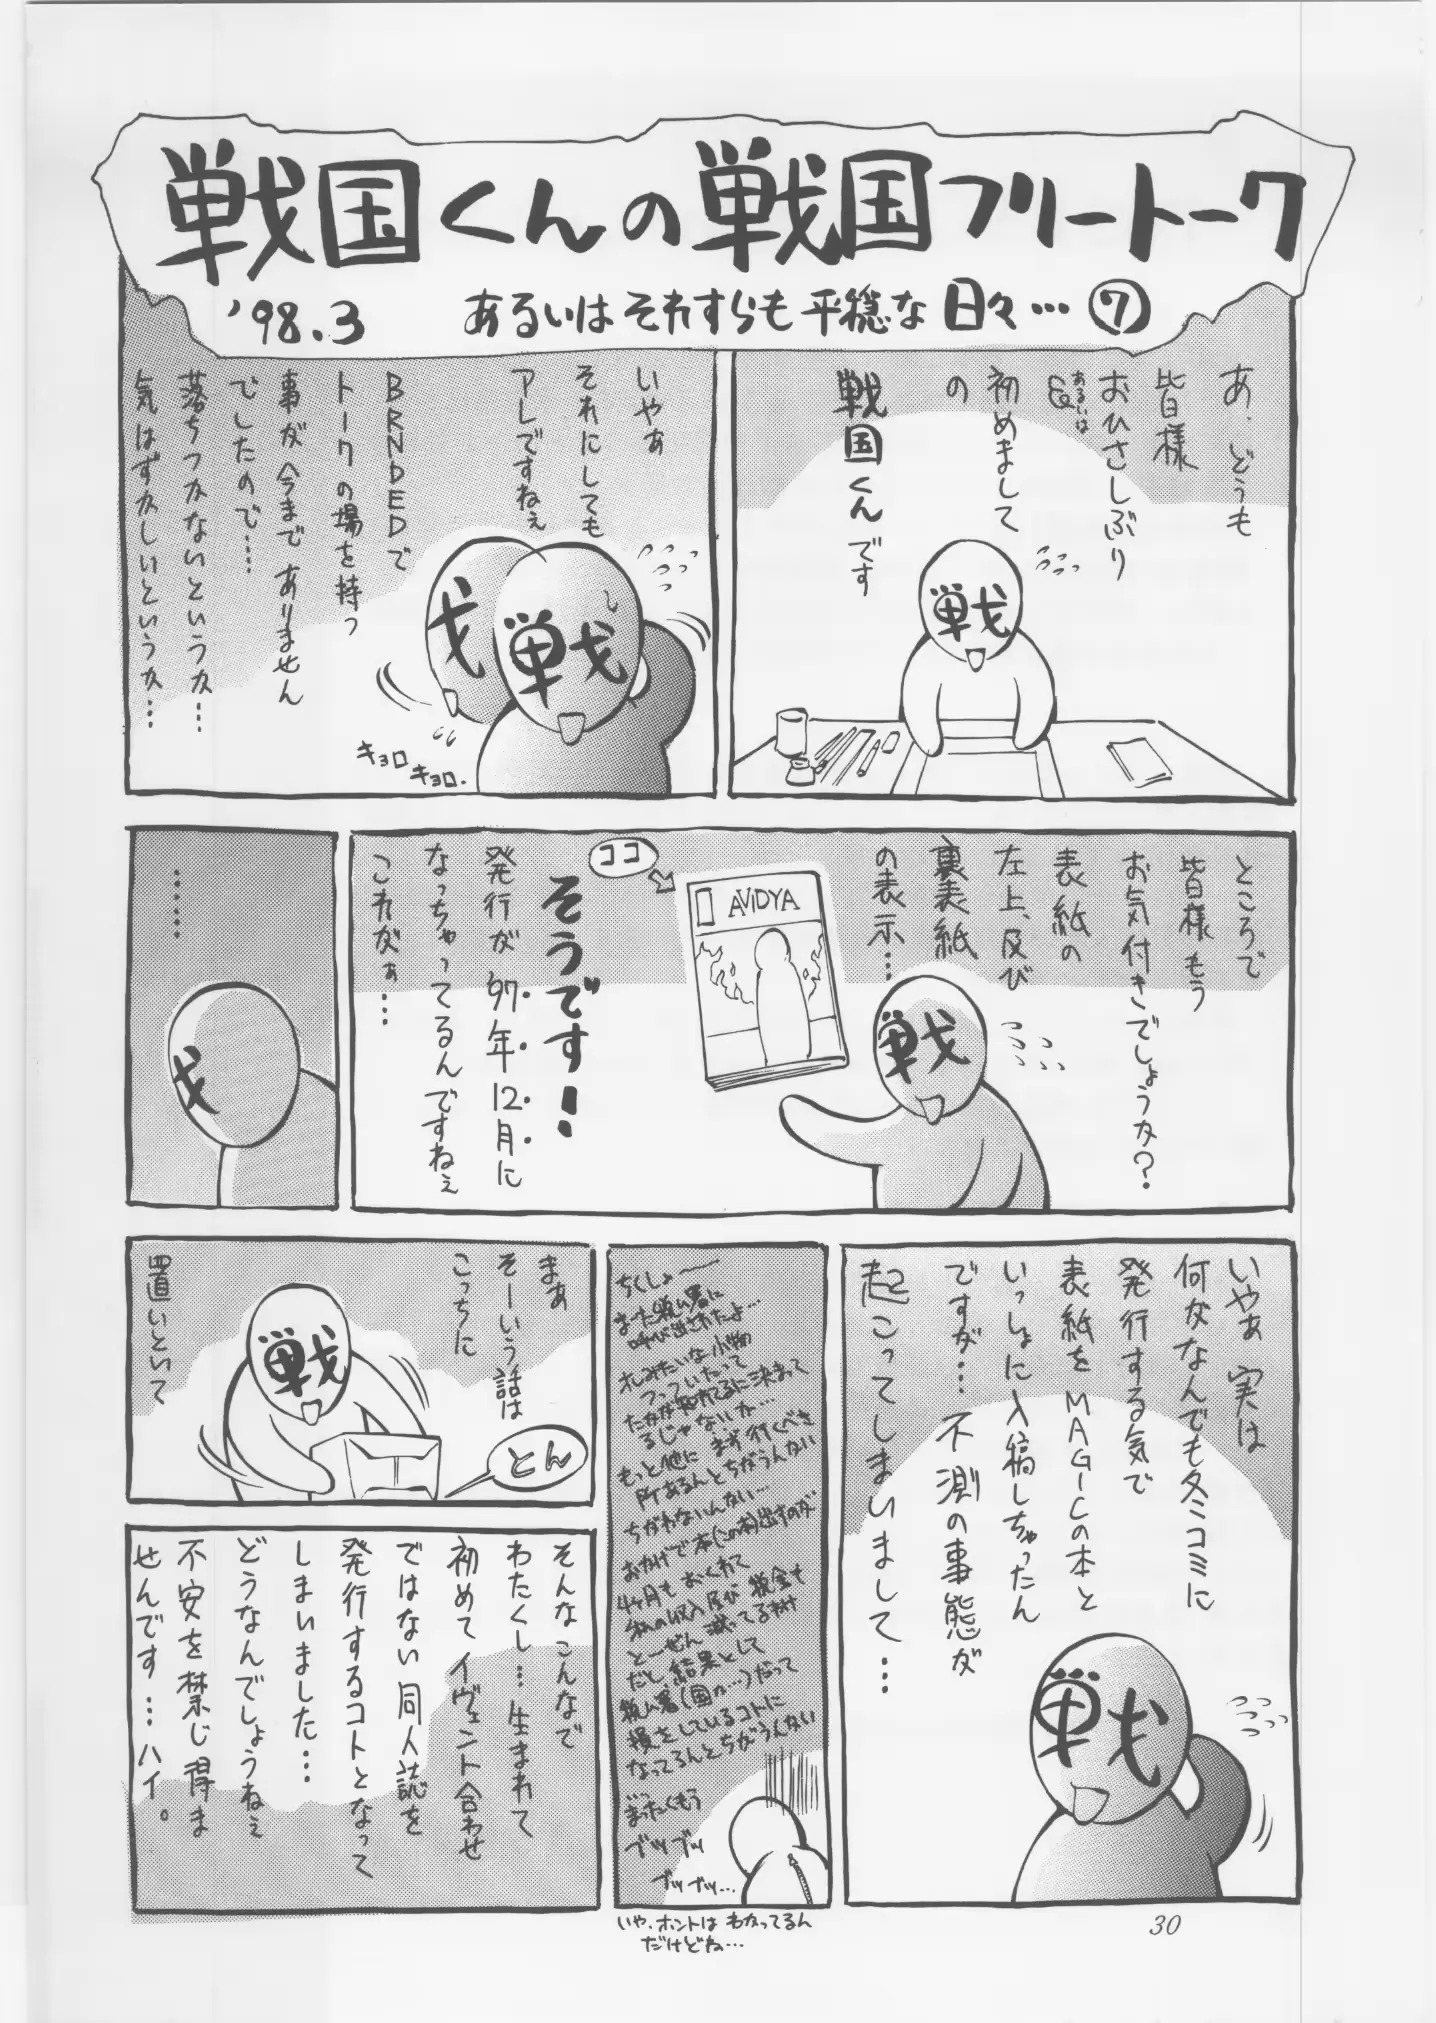 戦国くんの戦国フリートーク
'98.3 あるいはそれすらも平穏な日々…⑦
あ、どうも
皆様
おひさしぶり
&あるいは
初めまして
の
戦国くんです
いやぁ
それにしても
アレですねぇ
BRNDEDで
トークの場を持つ
事が今までありません
でしたので……
落ちつかないというか…
気はずかしいというか…
キョロ
キョロ.
ところで
皆様もう
お気付きでしょうか?
表紙の
左上、及び
裏表紙
の表示…
ココ
AVIDYA
そうです!
発行が'97年12月に
なっちゃってるんですねぇ
これがぁ…
……
いやぁ実は
何がなんでも冬コミに
発行する気で
表紙をMAGICの本と
いっしょに入稿しちゃったん
ですが…不測の事態が
起こってしまいまして…
ちくしょー
また税ム署に
呼び出されたよ…
オレみたいな小物
つっついたって
たかが知れてるに決まって
るじゃないか…
もっと他にまず行くべき
所あるんとちがうんない
ちがわないんない…
おかげで本(この本)出すのが
4ヶ月もおくれて
私の収入及び税金も
とーぜん減ってるわけ
だし結果として
税ム署(国か…)だって
損をしているコトに
なってるんとちがうんない
…ったくもう
ブツブツ
ブツブツ…
いや、ホントはわかってるん
だけどね…
まあ
そーいう話は
こっちに
置いといて
とん
そんなこんなで
わたくし…生まれて
初めてイヴェント合わせ
ではない同人誌を
発行するコトとなって
しまいました…
どうなんでしょうねぇ
不安を禁じ得ま
せんです…ハイ。
30